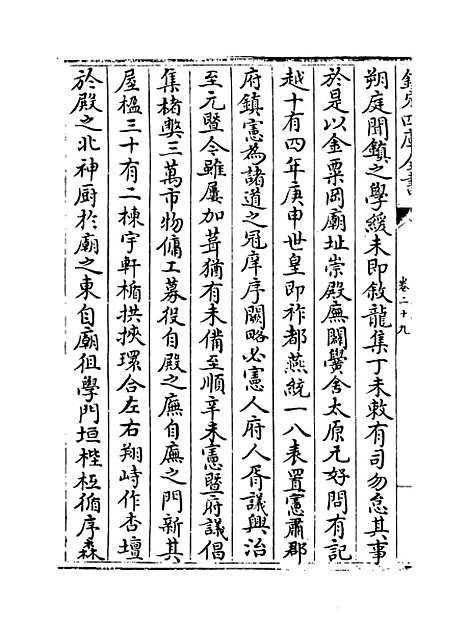 欽定四庫全書
卷二十九
朔庭聞鎮之學緩未即敘龍集丁未敕有司勿怠其事
於是以金粟岡廟址崇殿廡闢黌舍太原元好問有記
越十有四年庚申世皇即祚都燕統一八表置憲肅郡
府鎮憲為諸道之冠庠序闕略必憲人府人胥議興治
至元暨今雖屢加葺猶有未備至順辛未憲暨府議倡
集楮幣三萬市物傭工募役自殿之廡自廡之門新其
屋楹三十有二棟宇軒楯拱挾環合左右翔峙作杏壇
於殿之北神厨於廟之東自廟徂學門垣梐枑循序森